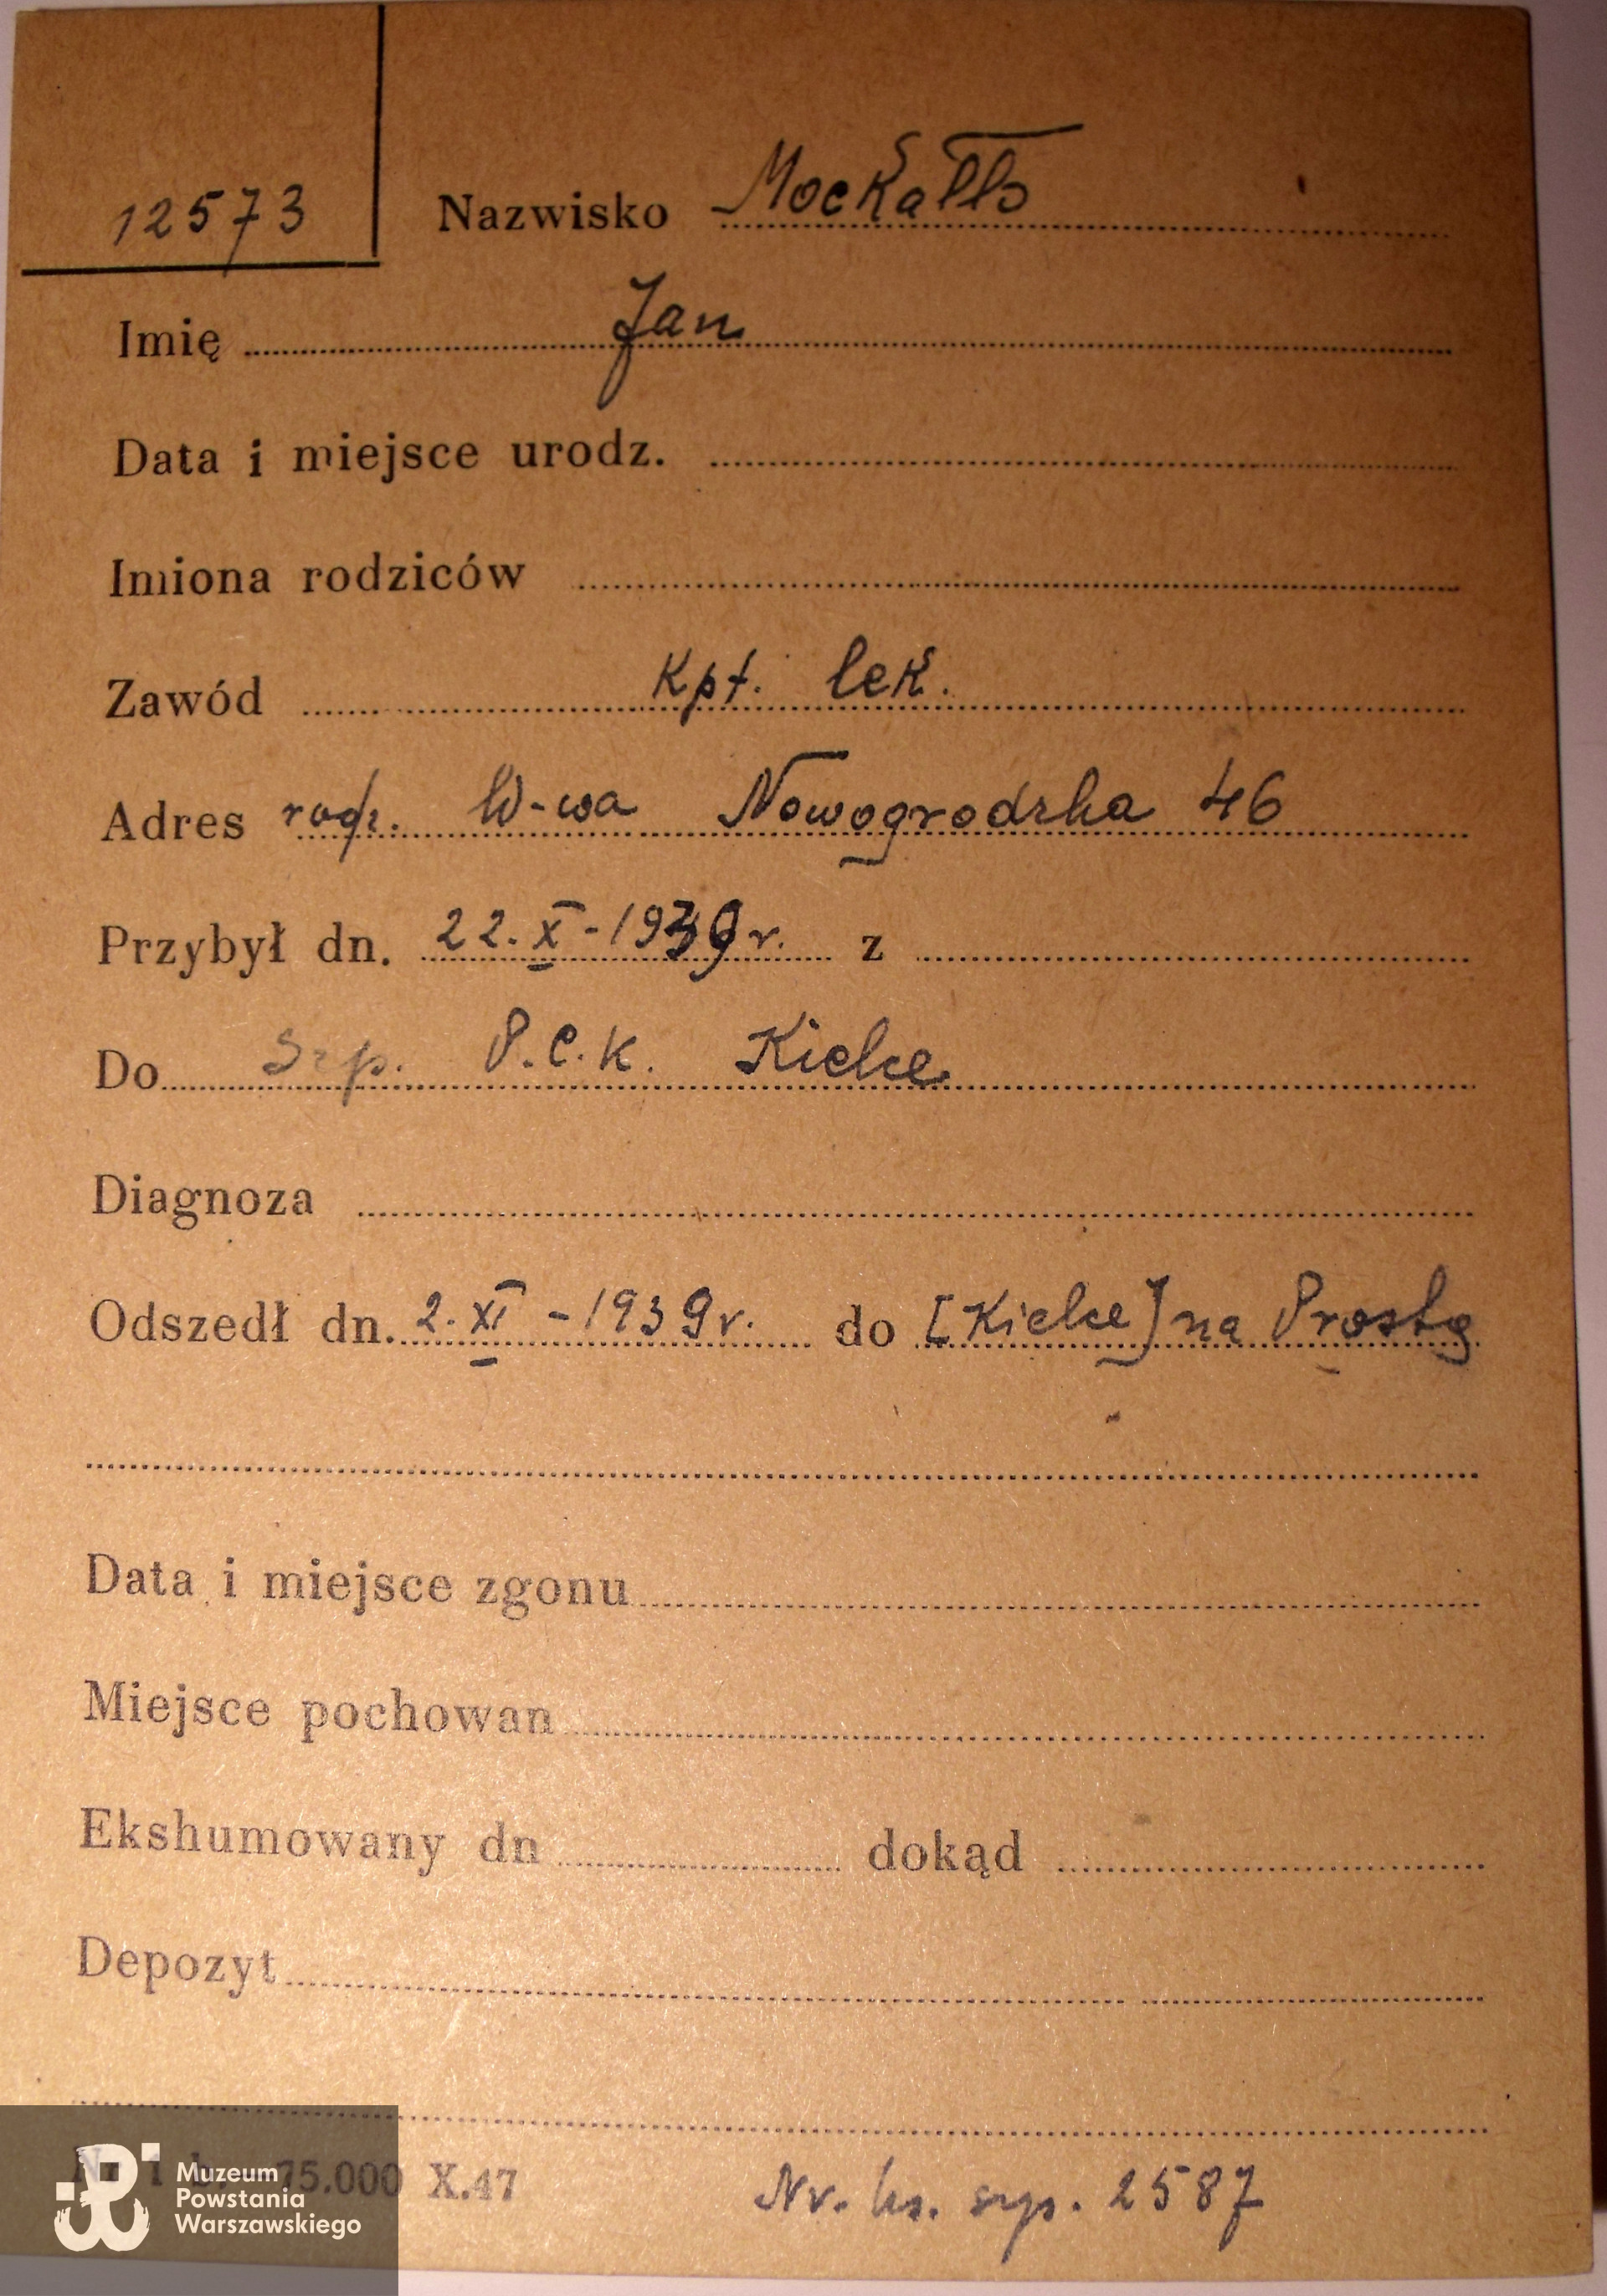 12573
Nazwisko Mockałło
Imię Jan
Data i miejsce urodz.
Imiona rodziców
Zawód Kpt. lek.
Adres rodz. W-wa Nowogrodzka 46
Przybył dn. 22.X-1939r. z
Do Szp. P.C.K. Kielce
Diagnoza
Odszedł dn. 2.XI-1939r. do [Kielce] na Prostą
Data i miejsce zgonu
Miejsce pochowan
Ekshumowany dn dokąd
Depozyt
75.000 X.47
Nr. ks. szp. 2587
Muzeum
Powstania
Warszawskiego